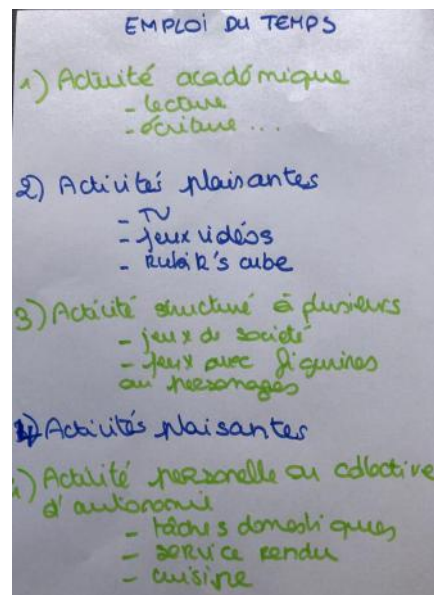 EMPLOI DU TEMPS
1) Activité académique
- lecture
- écriture ...
2) Activités plaisantes
- TV
- jeux vidéos
- Rubik's cube
3) Activité structuré à plusieurs
- jeux de société
- jeux avec figurines
ou personages
4) Activités plaisantes
) Activité personelle ou collective
d'autonomie
- tâches domestiques
- service rendu
- cuisine